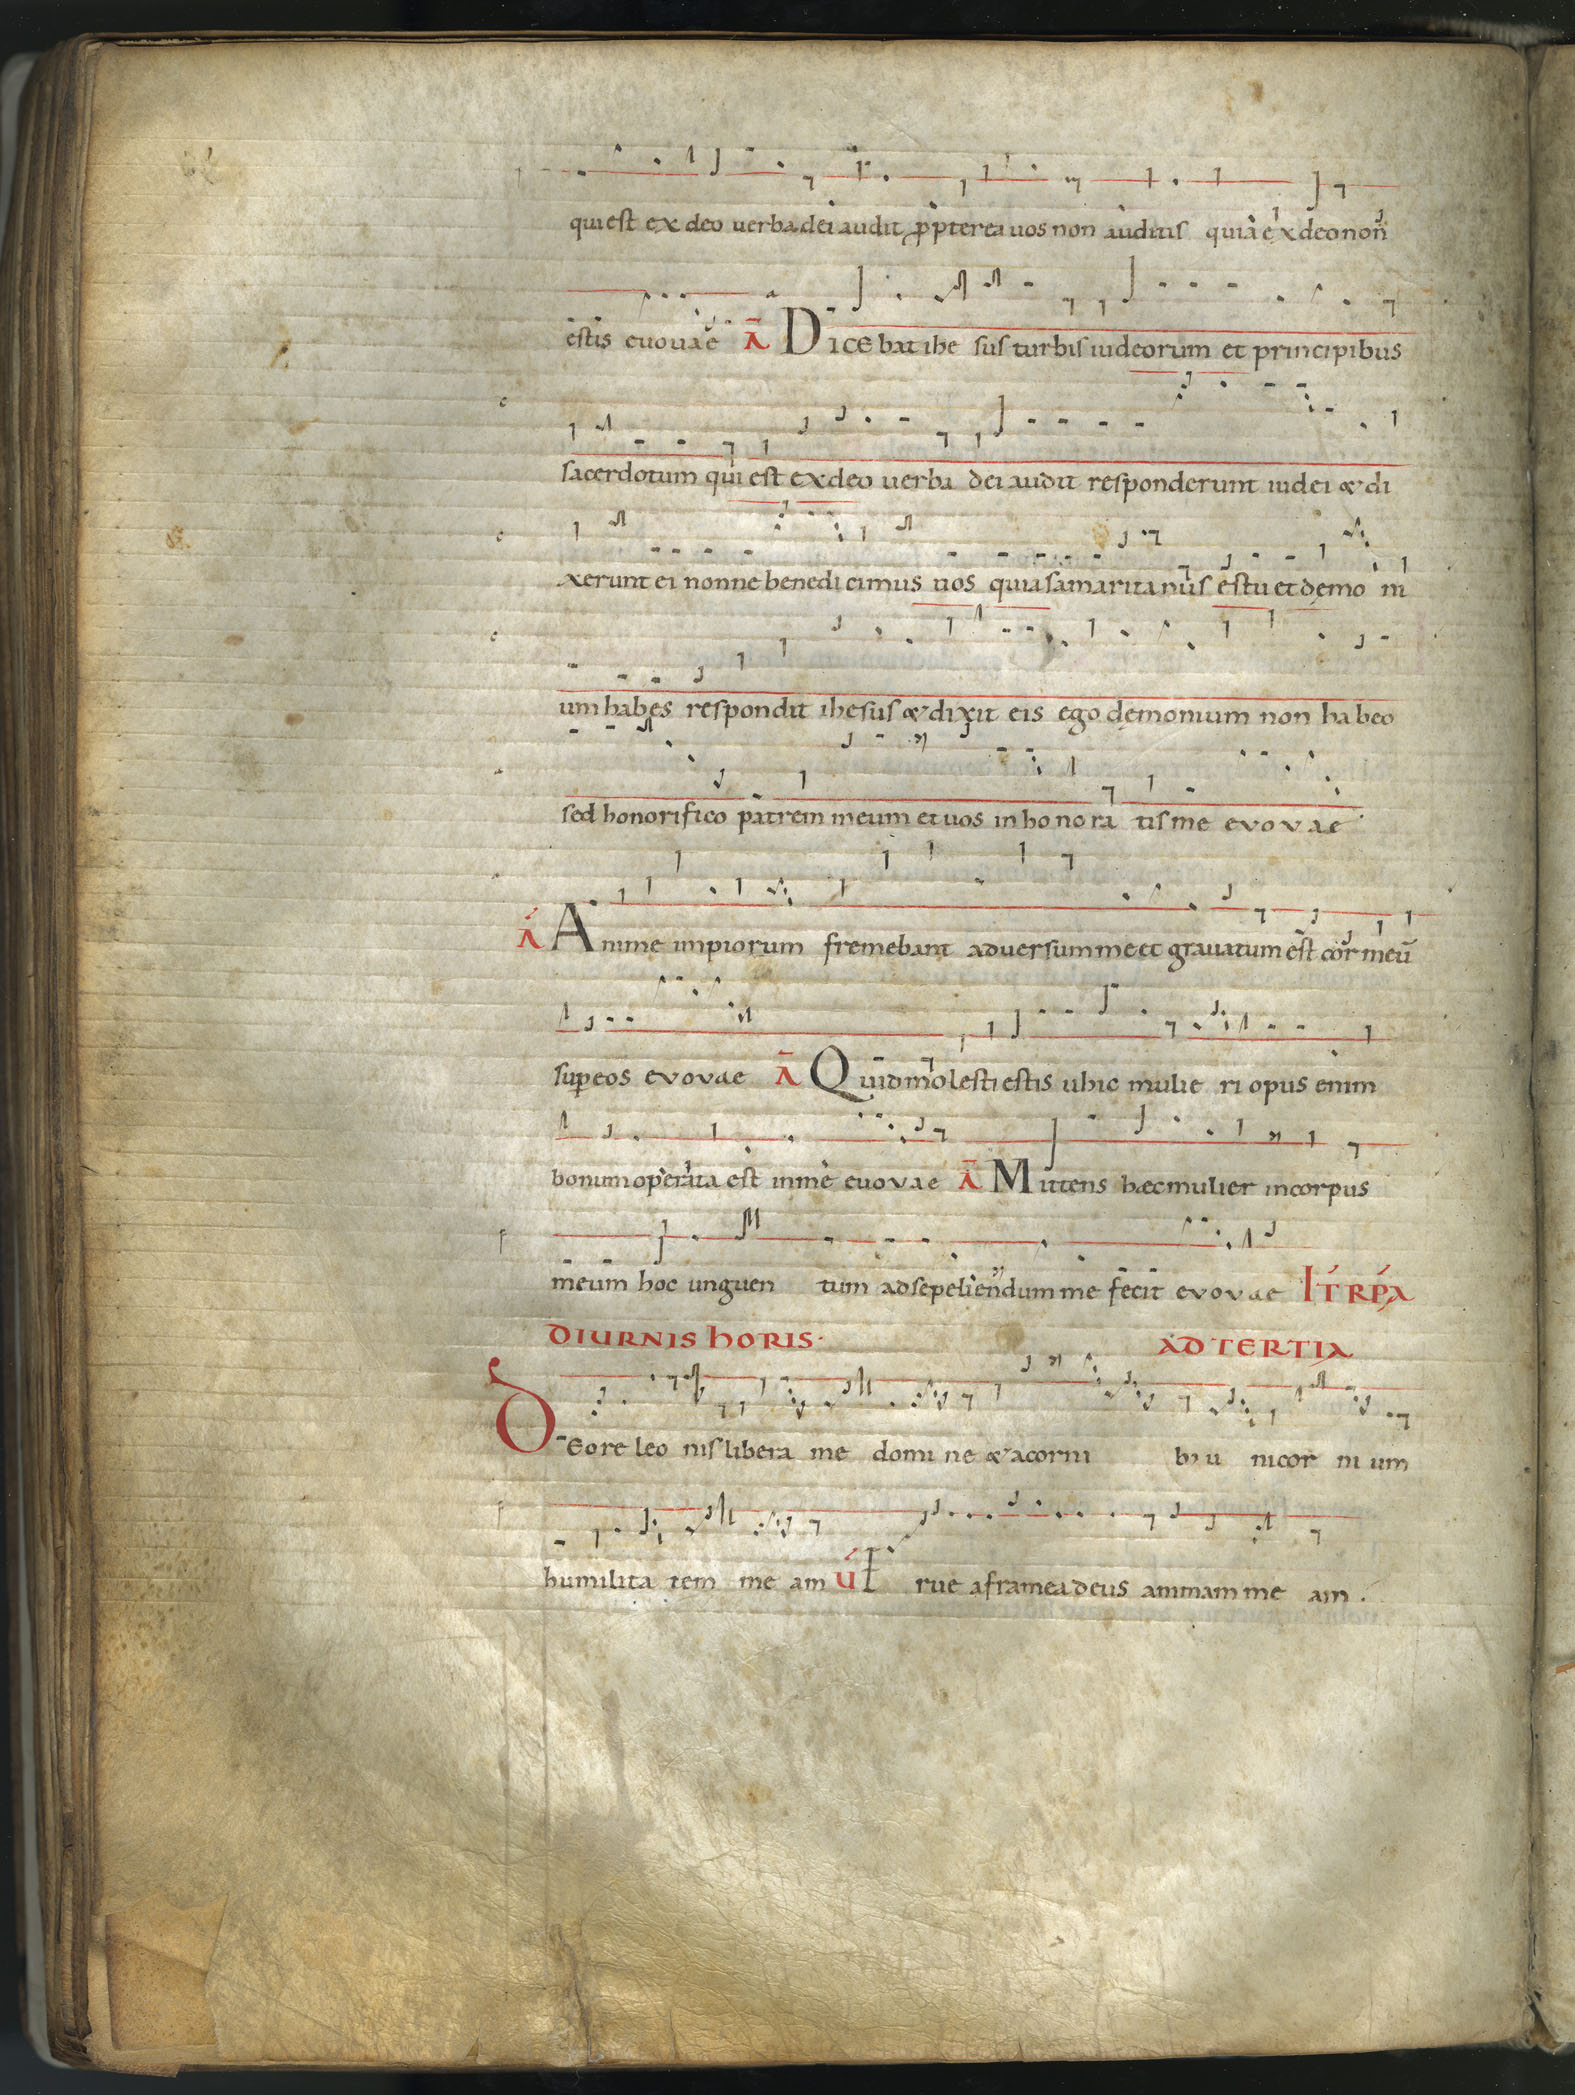 qui est ex deo uerba dei audit ꝓpterea uos non auditis quia ex deo non
estis euouae A Dicebat ihesus turbis iudeorum et principibus
sacerdotum qui est ex deo uerba dei audit responderunt iudei & di
xerunt ei nonne benedicimus uos quia samaritanus es tu et dęmoni
um habes respondit ihesus & dixit eis ego dęmonium non habeo
sed honorifico patrem meum et uos inhonoratis me evovae
A Anime impiorum fremebant adversum me et grauatum est cor meū
super eos evovae A Quid molesti estis uhic mulieri opus enim
bonum operata est in me euovae A Mittens hæc mulier in corpus
meum hoc unguentum ad sepeliendum me fecit evovae IT̄ RP̄A
DIURNIS HORIS· AD TERTIA
De ore leonis libera me domine & a cornibꝰ unicornium
humilitatem meam V Erue a framea deus animam meam.